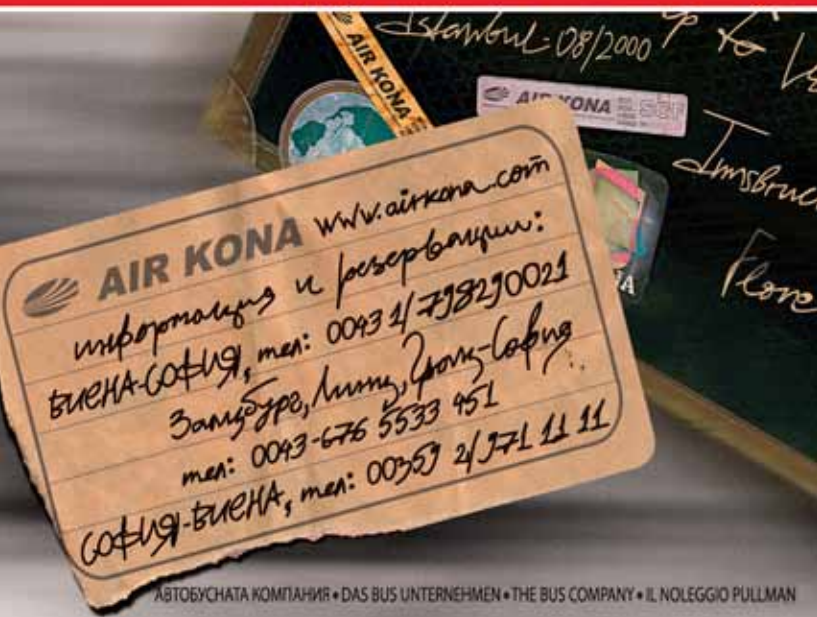 Istanbul-08/2000
up to
AIR KONA
AIR KONA
Innsbruc
Flore
AIR KONA www.airkona.com
информация и резервации:
ВИЕНА-СОФИЯ, тел: 0043 1/798290021
Залцбург, Линц, Грац-София
тел: 0043-676 5533 451
СОФИЯ-ВИЕНА, тел: 00359 2/971 11 11
АВТОБУСНАТА КОМПАНИЯ • DAS BUS UNTERNEHMEN • THE BUS COMPANY • IL NOLEGGIO PULLMAN